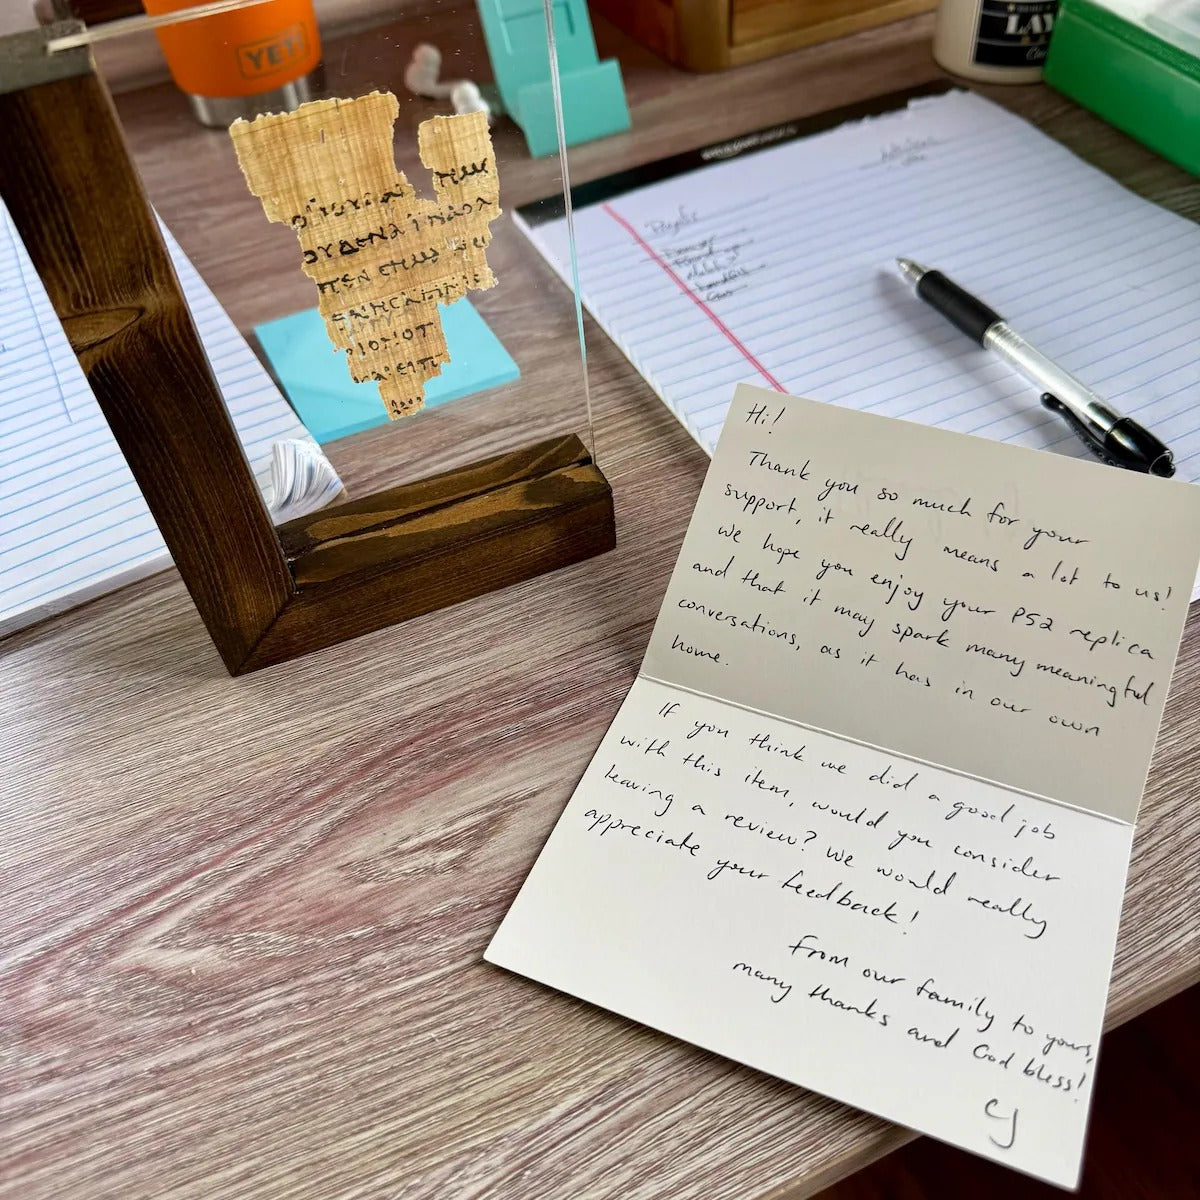 YETI
ΟΥΔΕΝΑ ΙΝΑ
ΠΕΝ
ΡΙΟΝ
Hi!
Thank you so much for your
support, it really means a lot to us!
We hope you enjoy your P52 replica
and that it may spark many meaningful
conversations, as it has in our own
home.
If you think we did a good job
with this item, would you consider
leaving a review? We would really
appreciate your feedback!
From our family to yours,
many thanks and God bless!
CJ